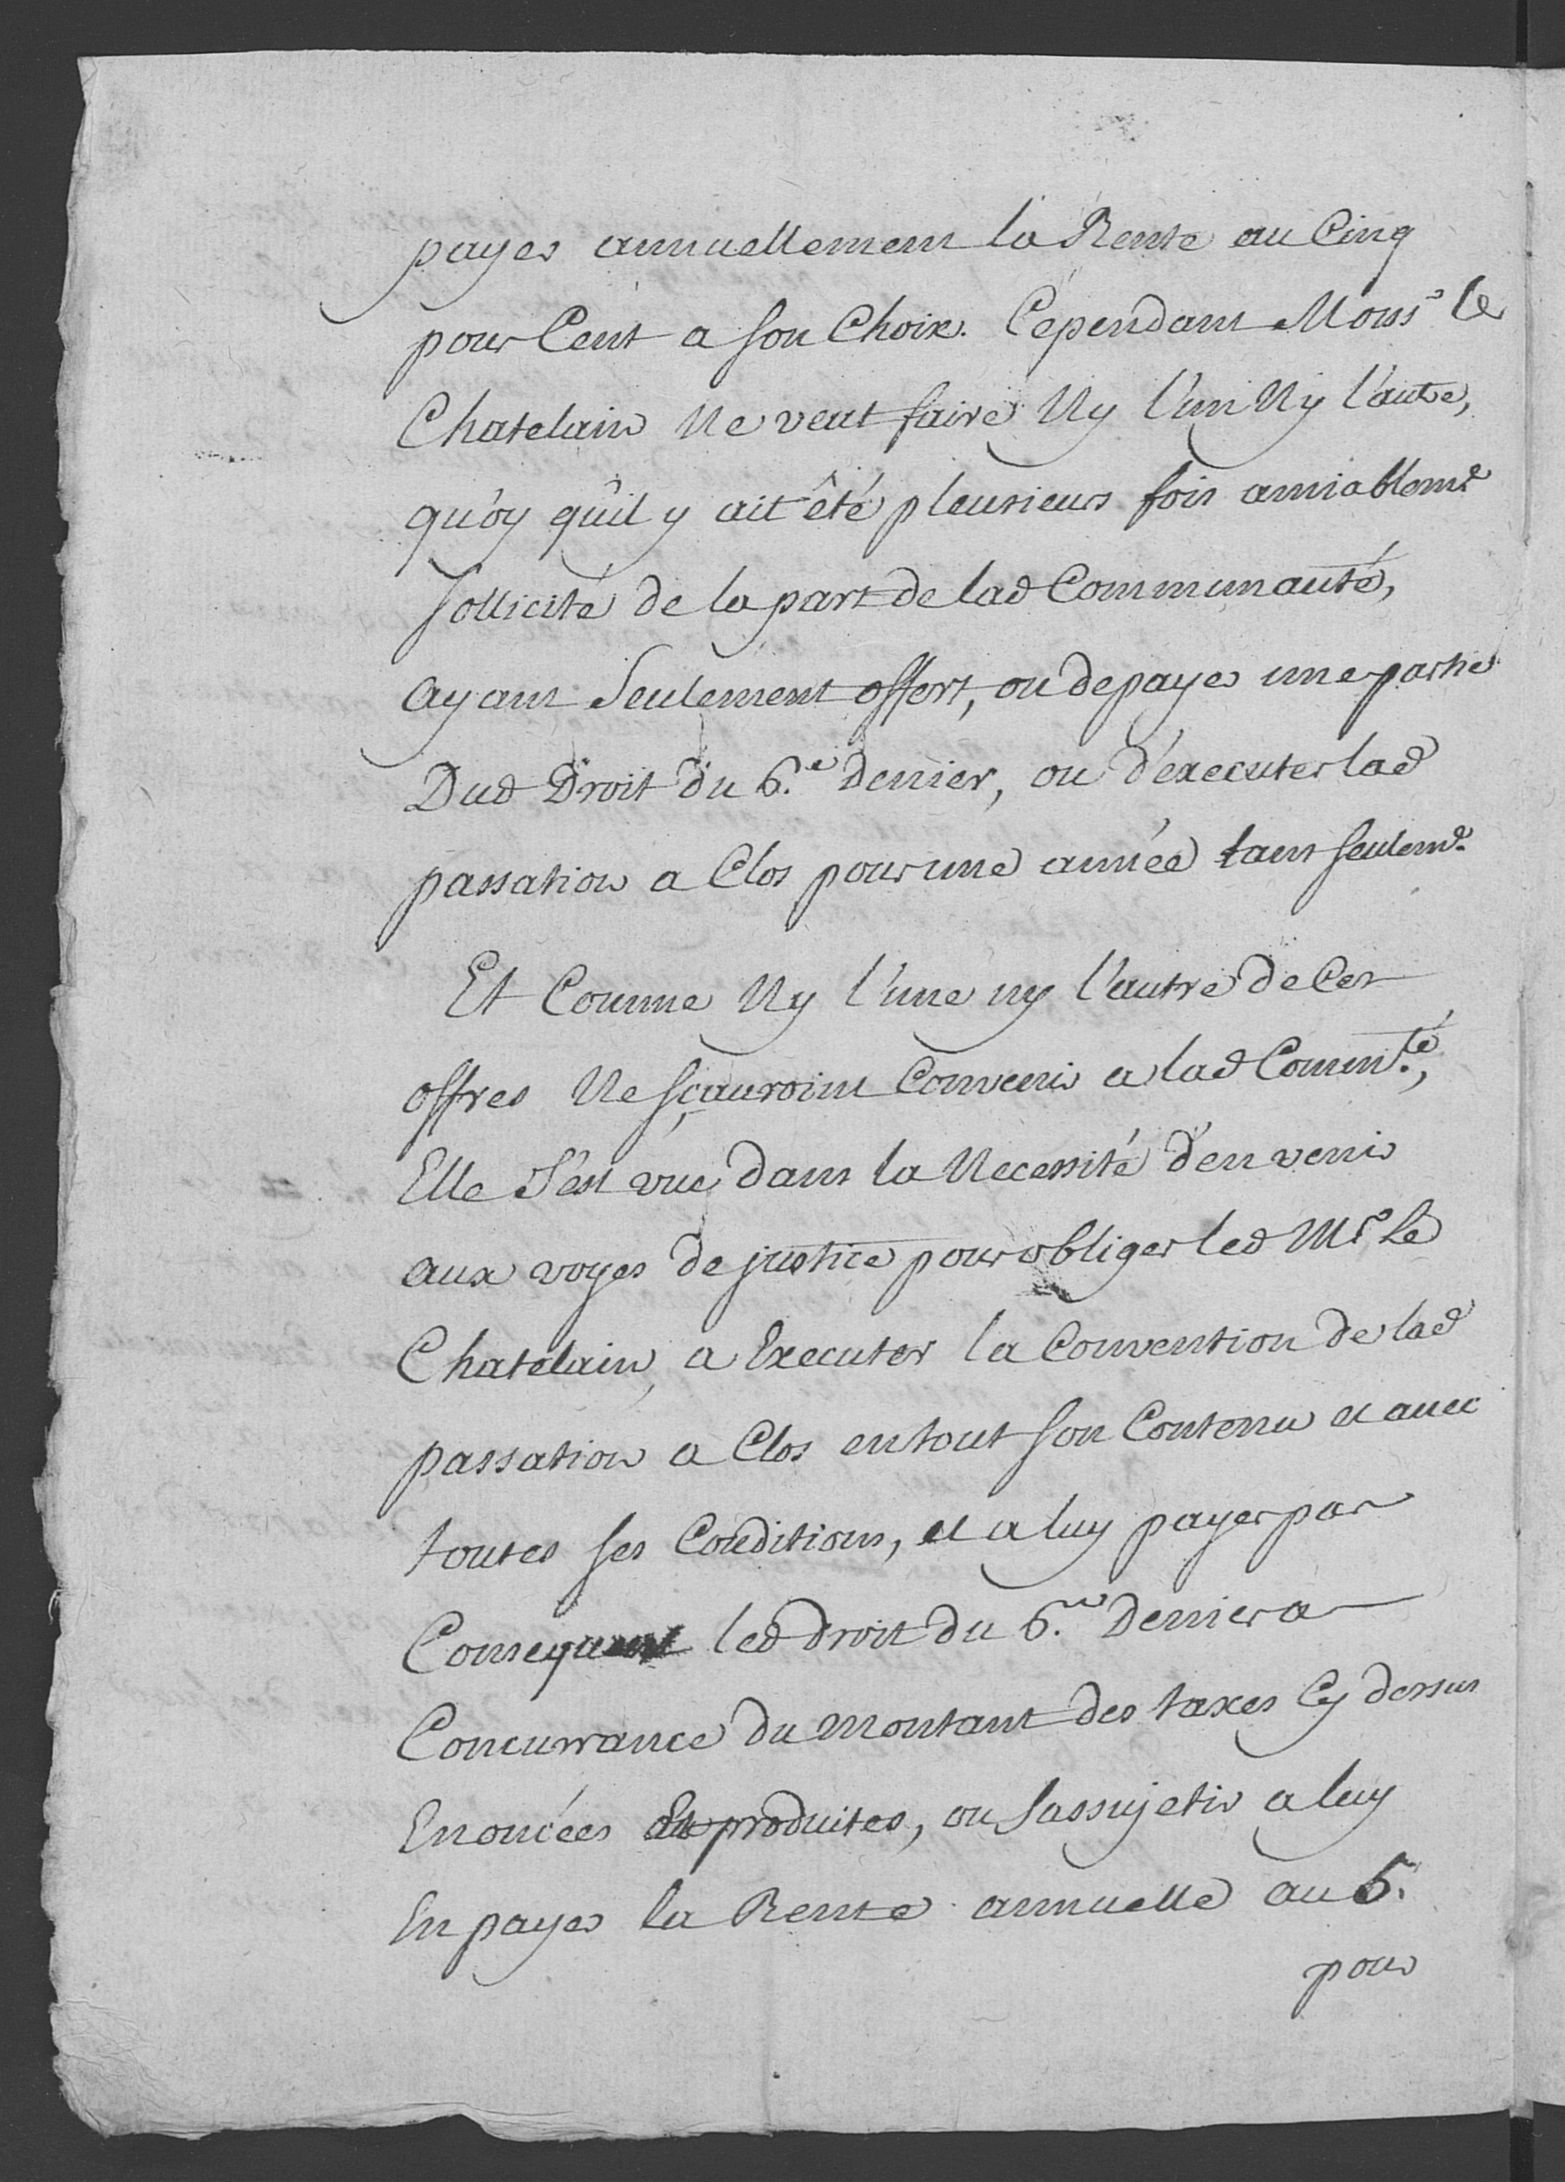 payer annuellement la Rente au Cinq
pour Cent a son Choix. Cependant Mons.r le
Chatelain Ne veut faire Ny l'un Ny l'autre,
qu'oy qu'il y ait été pleusieurs fois amiablem.t
sollicité de la part de lad Communauté,
ayant seulement offert, ou de payer une partie
Dud Droit du 6.e denier, ou d'executer lad
passation a Clos pour une année tant seulem.t
Et Comme Ny l'une ny l'autre de Ces
offres Ne sçauroint Convenir a lad Comm.té,
Elle s'est vue dans la Necessité d'en venir
aux voyes de justice pour obliger led M.r le
Chatelain, a Executer la Convention de lad
passation a Clos en tout son Contenu et avec
toutes ses Conditions, et a luy payer par
Consequent led droit du 6.me denier a
Concurrance du montant des taxes Cy dessus
Enoncées Et produites, ou s'assujetir a luy
En payer la Rente annuelle au 5.
pour